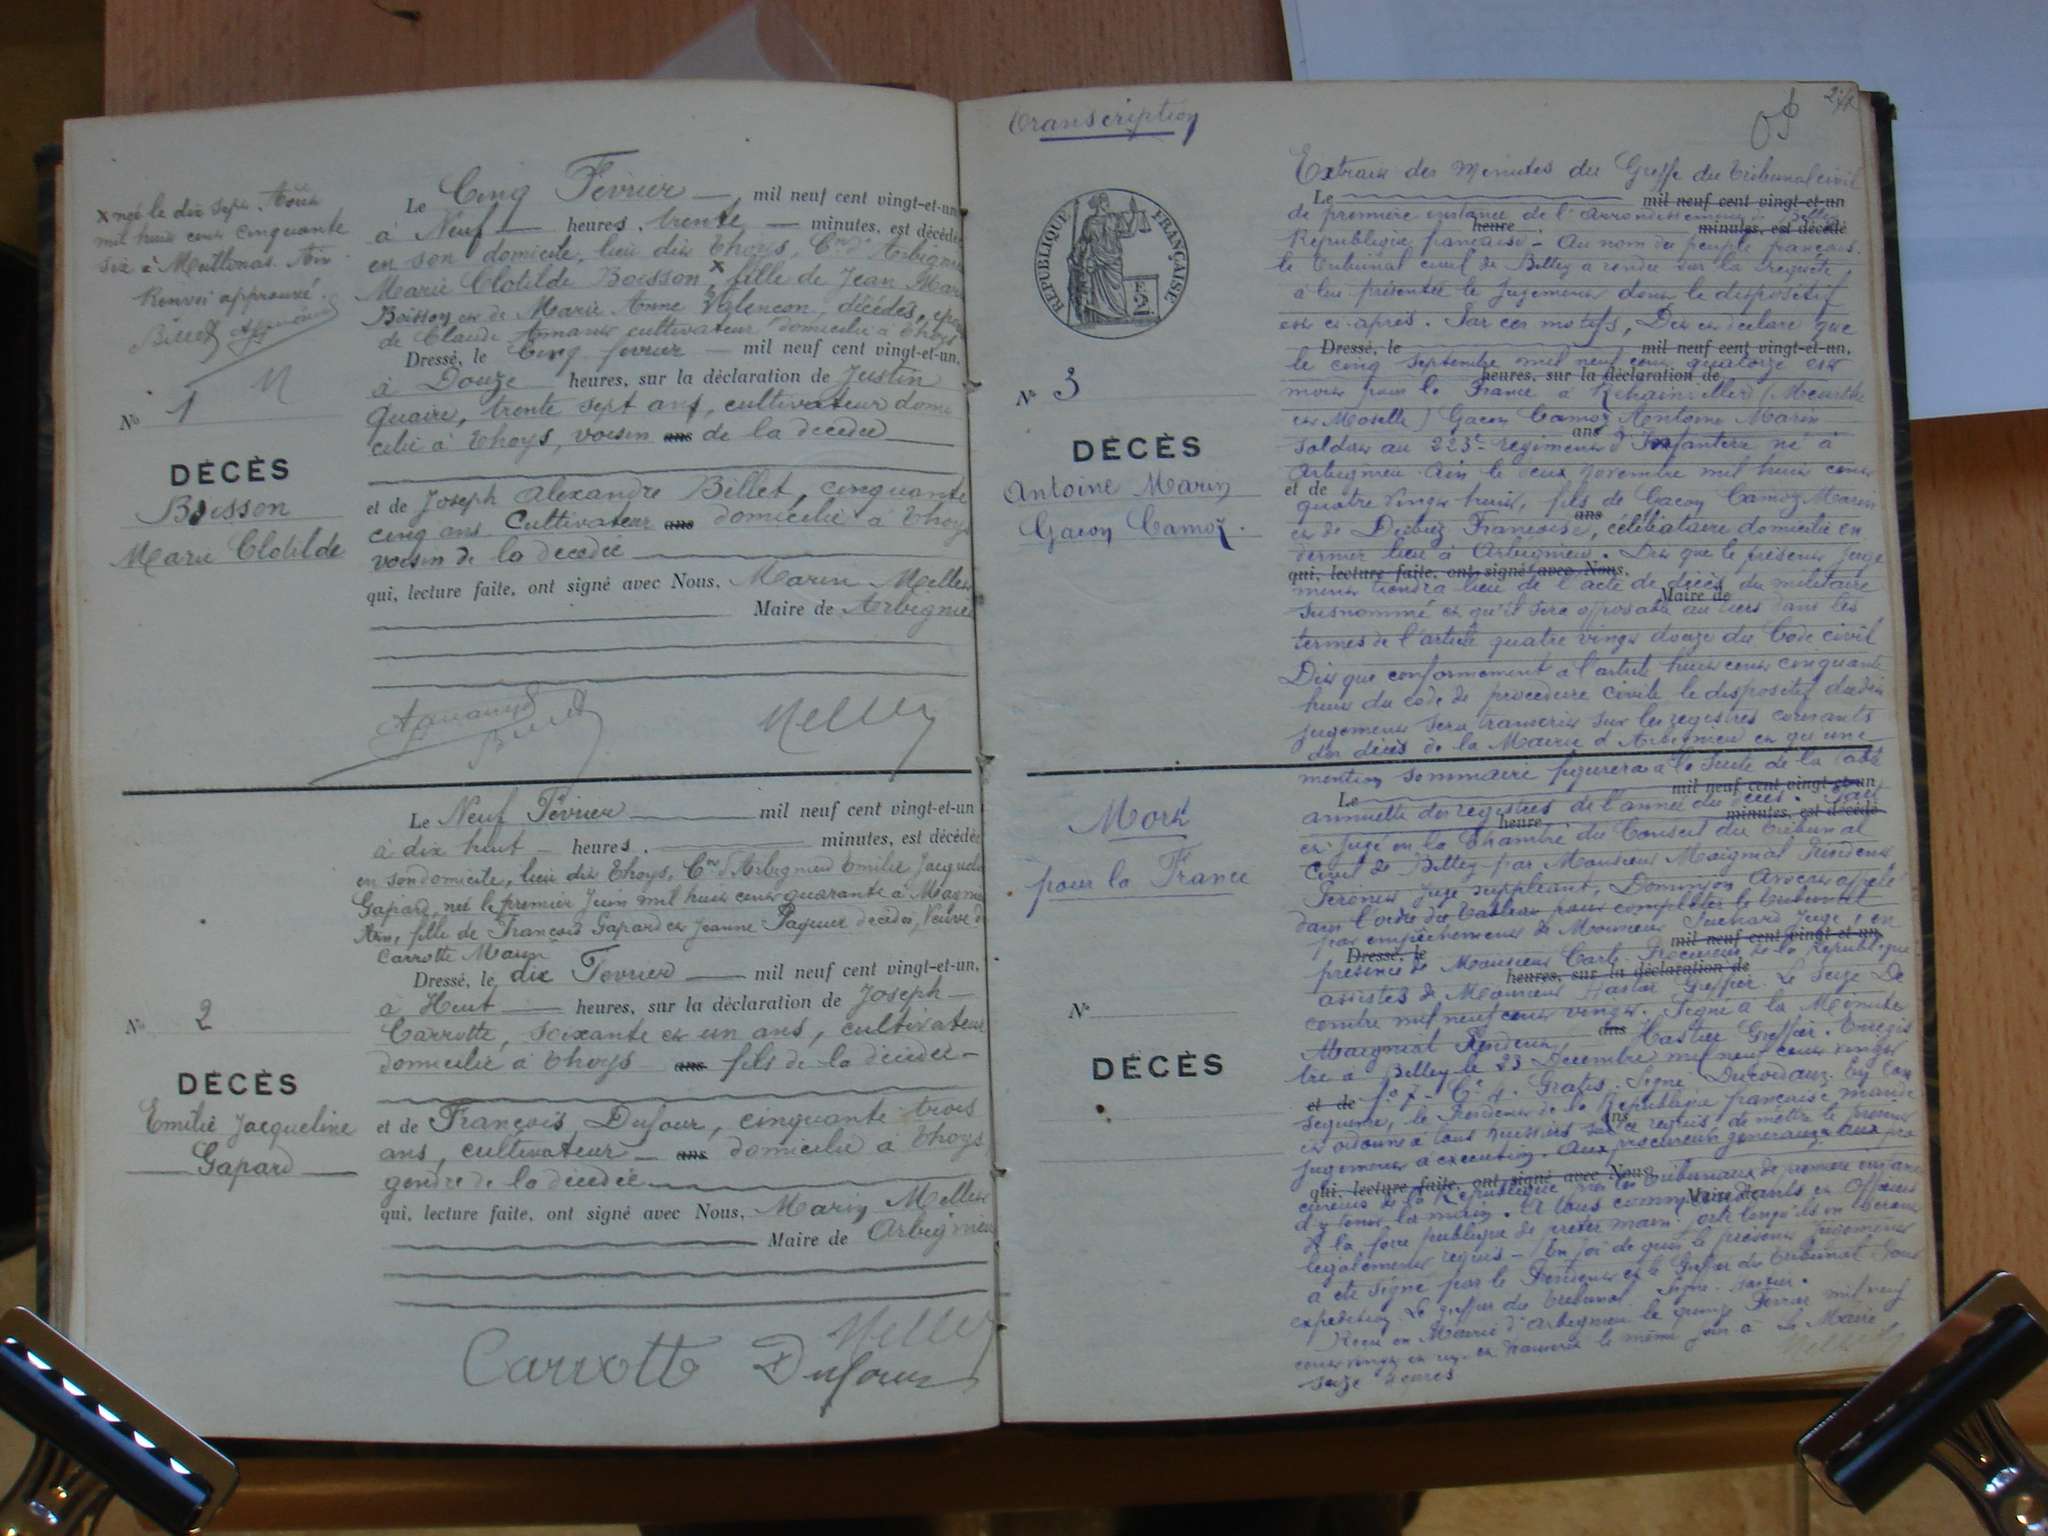 x née le dix sept Août
mil huit cent cinquante
six à Meillonnas. Ain.
Renvoi approuvé.
Billet
N° 1
DÉCÈS
Boisson
Marie Clotilde
Le Cinq Février mil neuf cent vingt-et-un
à Neuf heures, trente minutes, est décédée
en son domicile, lieu dit Thoys, Cne d'Arbignieu
Marie Clotilde Boisson x, fille de Jean Marie
Boisson et de Marie Anne Valencon, décédés,
de Claude cultivateur domicilié à Thoys
Dressé, le Cinq fevrier mil neuf cent vingt-et-un,
à Douze heures, sur la déclaration de Justin
Quaire, trente sept ans, cultivateur domi
cilié à Thoys, voisin ans de la décédée
et de Joseph Alexandre Billet, cinquante
cinq ans Cultivateur ans domicilié à Thoys
voisin de la décédée
qui, lecture faite, ont signé avec Nous, Marin Mellet
Maire de Arbignieu
Billet Mellet
N° 2
DÉCÈS
Emilie Jacqueline
Gapard
Le Neuf Février mil neuf cent vingt-et-un
à dix huit heures, minutes, est décédée
en son domicile, lieu dit Thoys, Cne d'Arbignieu Emilie Jacqueline
Gapard, née le premier Juin mil huit cent quarante à
Ain, fille de François Gapard et Jeanne Paquet décédés, Veuve de
Carrotte Marin
Dressé, le dix Fevrier mil neuf cent vingt-et-un,
à Huit heures, sur la déclaration de Joseph
Carrotte, soixante et un ans, cultivateur
domicilié à Thoys ans fils de la décédée
et de François Dufour, cinquante trois
ans, cultivateur ans domicilié à Thoys
gendre de la décédée
qui, lecture faite, ont signé avec Nous, Marin Mellet
Maire de Arbignieu
Mellet
Carrotte Dufour
Transcription
RÉPUBLIQUE FRANÇAISE
N° 3
DÉCÈS
Antoine Marin
Gacon Camoz.
Mort
pour la France
N°
DÉCÈS
Extrait des Minutes du Greffe du Tribunal civil
Le mil neuf cent vingt-et-un
de première instance de l'Arrondissement de Belley
heure minutes, est décédé
République française - Au nom du peuple français.
le Tribunal civil de Belley a rendu sur la requête
à lui présentée le jugement dont le dispositif
est ci-après. Par ces motifs, Dit et déclare que
Dressé, le mil neuf cent vingt-et-un,
le cinq septembre mil neuf cent quatorze est
heures, sur la déclaration de
mort pour la France à Rehainviller (Meurthe
et Moselle) Gacon Camoz Antoine Marin
ans
soldat au 223e régiment d'Infanterie né à
Arbignieu Ain le novembre mil huit cent
et de
quatre vingt huit, fils de Gacon Camoz Marin
ans
et de Françoise, célibataire domicilié en
dernier lieu à Arbignieu. Dit que le présent juge
qui, lecture faite, ont signé avec Nous,
ment tiendra lieu de l'acte de décès du militaire
Maire de
susnommé et qu'il sera opposable au tiers dans les
termes de l'article quatre vingt douze du Code civil
Dit que conformement à l'article huit cent cinquante
huit du code de procedure civile le dispositif dudit
jugement sera transcrit sur les registres courants
des décès de la Mairie d'Arbignieu et qu'une
mention sommaire figurera à la suite de la table
Le mil neuf cent vingt-et-un
annuelle des registres de l'année du décès. Fait
heure minutes, est décédé
et jugé en la Chambre du Conseil du Tribunal
Civil de Belley par Monsieur Maigniat Président,
juge suppléant, Dominjon Avocat appelé
dans l'ordre du tableau pour compléter le tribunal
par empêchement de Monsieur Juge, en
mil neuf cent vingt-et-un
Dressé, le
présence de Monsieur Procureur de la République
heures, sur la déclaration de
assistés de Monsieur Hastier Greffier. Le Seize Dé
cembre mil neuf cent vingt. Signé à la Minute
ans
Maigniat Président, Hastier Greffier. Enregis
tré à Belley le 23 Decembre mil neuf cent vingt
et de
f° 7 - Ce 4. Gratis. Signé En con
sequence, le Président de la République française mande
ans
et ordonne à tous huissiers sur ce requis de mettre le présent
jugement à execution. Aux procureurs generaux et aux pro
qui, lecture faite, ont signé avec Nous,
cureurs de la République près les tribunaux de première instance
Maire de
d'y tenir la main. A tous commandants et Officiers
de la force publique de prêter main forte lorsqu'ils en seront
légalement requis - En foi de quoi le présent jugement
a été signé par le Président et le Greffier du tribunal Pour
expédition. Le greffier du tribunal. Signé.
Reçu en Mairie d'Arbignieu le quinze Fevrier mil neuf
cent vingt et un et transcrit le même jour à Le Maire
seize heures
Mellet